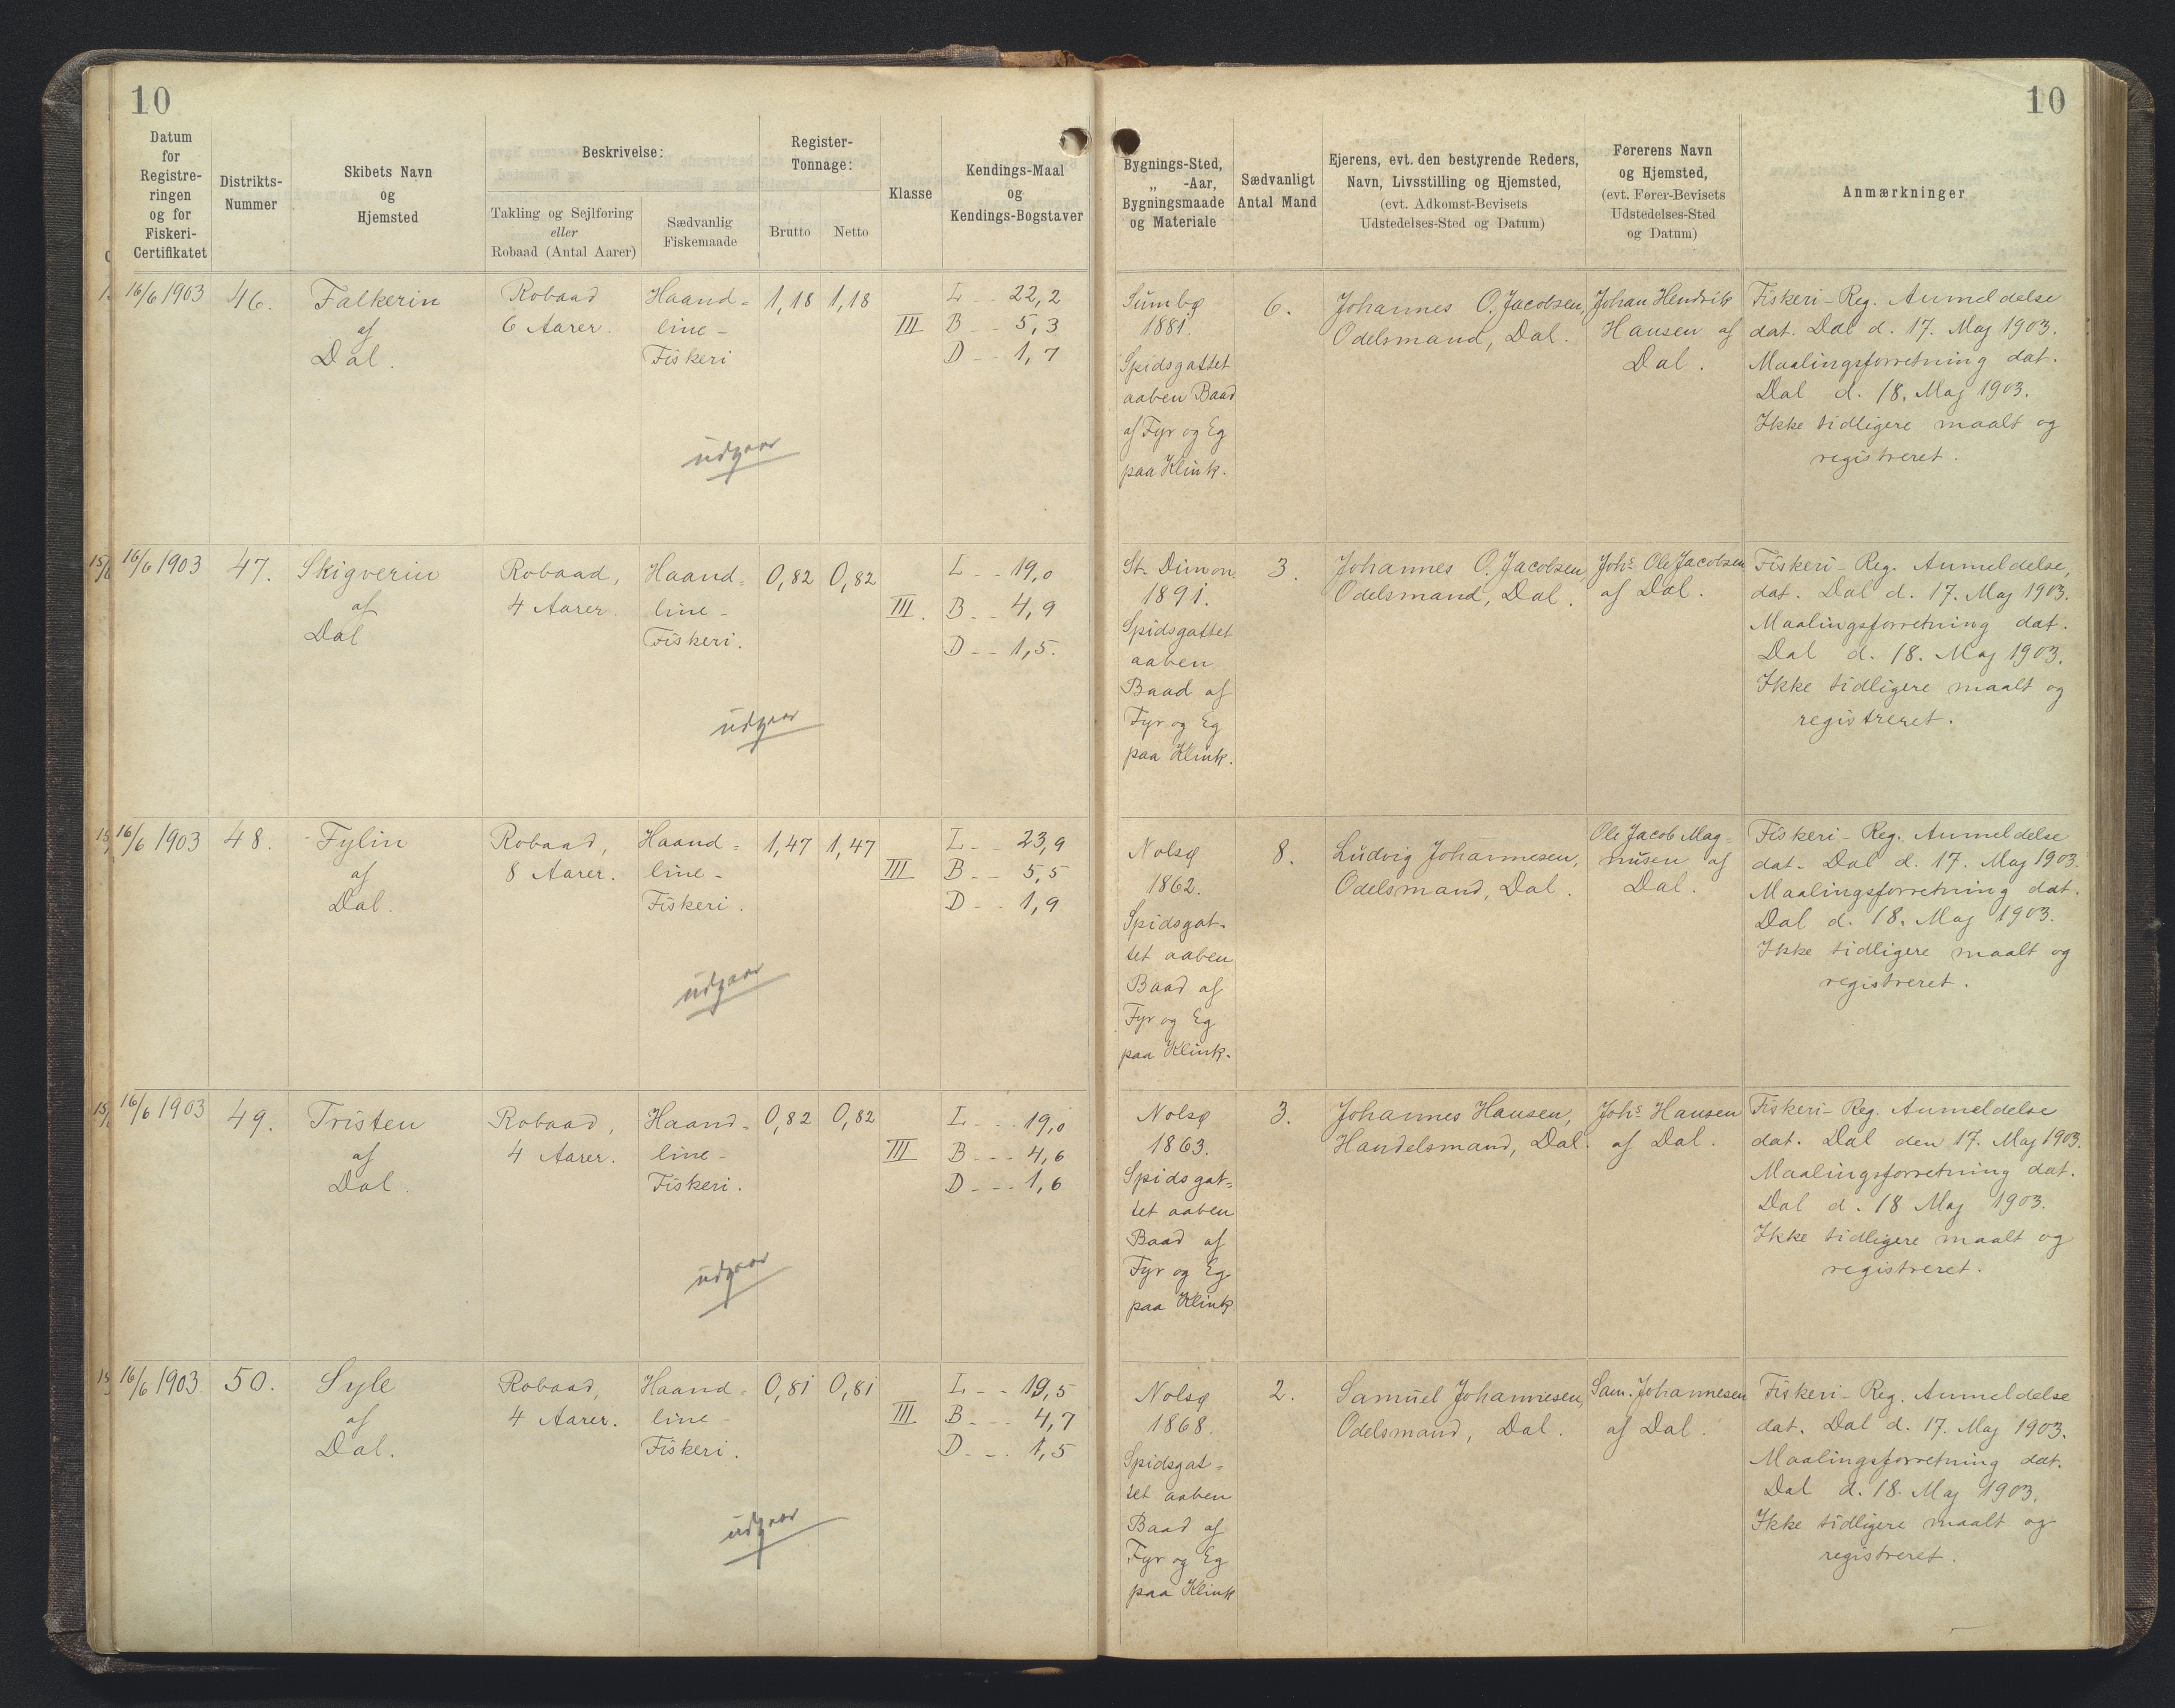 10
10
Datum
for
Registre-
ringen
og for
Fiskeri-
Certifikatet
Distrikts-
Nummer
Skibets Navn
og
Hjemsted
Beskrivelse:
Takling og Sejlføring
eller
Robaad (Antal Aarer)
Sædvanlig
Fiskemaade
Register-
Tonnage:
Brutto
Netto
Klasse
Kendings-Maal
og
Kendings-Bogstaver
Bygnings-Sted,
„ -Aar,
Bygningsmaade
og Materiale
Sædvanligt
Antal Mand
Ejerens, evt. den bestyrende Reders,
Navn, Livsstilling og Hjemsted,
(evt. Adkomst-Bevisets
Udstedelses-Sted og Datum)
Førerens Navn
og Hjemsted,
(evt. Fører-Bevisets
Udstedelses-Sted
og Datum)
Anmærkninger
16/6 1903
46.
Falkerin
af
Dal.
Robaad
6 Aarer.
Haand-
line-
Fiskeri
1,18
1,18
III
L - - 22,2
B - - 5,3
D - - 1,7
udgaar
Sumbø
1881.
Spidsgattet
aaben Baad
af Fyr og Eg
paa Klink.
6.
Johannes O. Jacobsen,
Odelsmand, Dal.
Johan Hendrik
Hansen af
Dal.
Fiskeri-Reg. Anmeldelse
dat. Dal d. 17. Maj 1903.
Maalingsforretning dat.
Dal d. 18. Maj 1903.
Ikke tidligere maalt og
registreret.
16/6 1903
47.
Skigverin
af
Dal
Robaad,
4 Aarer.
Haand-
line-
Fiskeri.
0,82
0,82
III.
L - - 19,0
B - - 4,9
D - - 1,5.
udgaar
St. Dimon
1891.
Spidsgattet
aaben
Baad af
Fyr og Eg
paa Klink.
3.
Johannes O. Jacobsen
Odelsmand, Dal.
Johs Ole Jacobsen
af Dal.
Fiskeri-Reg. Anmeldelse,
dat. Dal d. 17. Maj 1903.
Maalingsforretning dat.
Dal d. 18. Maj 1903.
Ikke tidligere maalt og
registreret.
16/6 1903
48.
Fylin
af
Dal.
Robaad,
8 Aarer.
Haand-
line-
Fiskeri.
1,47
1,47
III
L - - 23,9
B - - 5,5
D - - 1,9
udgaar
Nolsø
1862.
Spidsgat-
tet aaben
Baad af
Fyr og Eg
paa Klink.
8.
Ludvig Johannesen,
Odelsmand, Dal.
Ole Jacob Mag-
nusen af
Dal.
Fiskeri-Reg. Anmeldelse
dat. Dal d. 17. Maj 1903.
Maalingsforretning dat.
Dal d. 18. Maj 1903.
Ikke tidligere maalt og
registreret.
16/6 1903
49.
Tristen
af
Dal.
Robaad,
4 Aarer.
Haand-
line-
Fiskeri.
0,82
0,82
III
L - - - 19,0
B - - - 4,6
D - - - 1,6
udgaar
Nolsø
1863.
Spidsgat-
tet aaben
Baad af
Fyr og Eg
paa Klink
3.
Johannes Hansen,
Handelsmand, Dal.
Johs Hansen
af Dal.
Fiskeri-Reg. Anmeldelse
dat. Dal den 17. Maj 1903.
Maalingsforretning dat.
Dal d. 18 Maj 1903.
Ikke tidligere maalt og
registreret.
16/6 1903
50.
Syle
af
Dal.
Robaad,
4 Aarer.
Haand-
line-
Fiskeri.
0,81
0,81
III
L - - 19,5
B - - - 4,7
D - - - 1,5
udgaar
Nolsø
1868.
Spidsgat-
tet aaben
Baad af
Fyr og Eg
paa Klink
2.
Samuel Johannesen,
Odelsmand, Dal.
Sam. Johannesen
af Dal.
Fiskeri-Reg. Anmeldelse
dat. Dal d. 17. Maj 1903.
Maalingsforretning dat.
Dal d. 18. Maj 1903.
Ikke tidligere maalt og
registreret.